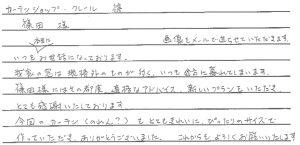 カーテンショップ・クレール 様
篠田 様
画像をメールで送らせていただきます。
いつもお世話になっております。
我家の窓は規格外のものが多く、いつも
篠田様にはその都度、適格なアドバイス 新しいプランをいただき、
とても感謝いたしております
今回のカーテン(のれん?)もとてもきれいに、ぴったりのサイズで
作っていただき、ありがとうございました。これからもよろしくお願いいたします